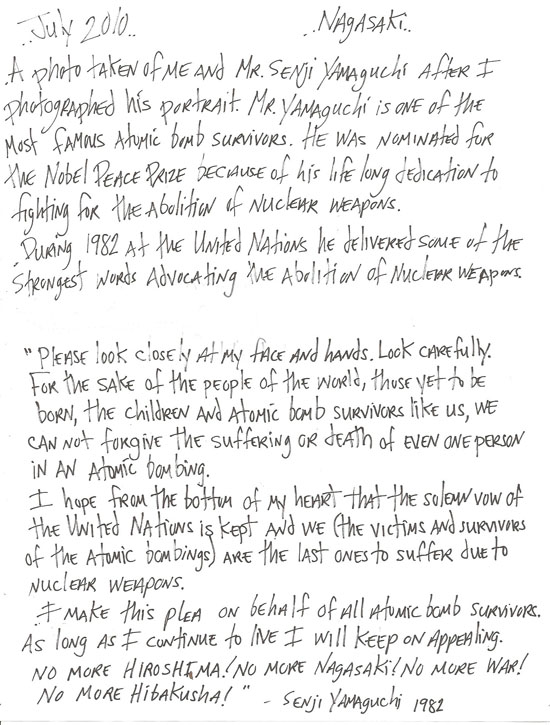 ..July 2010.. ..NAGASAKi..
.A photo taken of me and Mr. Senji Yamaguchi after I
photographed his portrait. Mr. Yamaguchi is one of the
most famous Atomic bomb survivors. He was nominated for
the Nobel Peace Prize because of his life long dedication to
fighting for the Abolition of Nuclear Weapons.
.During 1982 at the United Nations he delivered some of the
strongest words advocating the Abolition of Nuclear Weapons.
"Please look closely at my face and hands. Look carefully.
For the sake of the people of the world, those yet to be
born, the children and Atomic bomb survivors like us, we
can not forgive the suffering or death of even one person
in an Atomic bombing.
I hope from the bottom of my heart that the solemn vow of
the United Nations is kept and we (the victims and survivors
of the Atomic bombings) are the last ones to suffer due to
Nuclear Weapons.
.I make this plea on behalf of all Atomic bomb survivors.
As long as I continue to live I will keep on appealing.
No more Hiroshima! No more Nagasaki! No more war!
No more Hibakusha!" - Senji Yamaguchi 1982